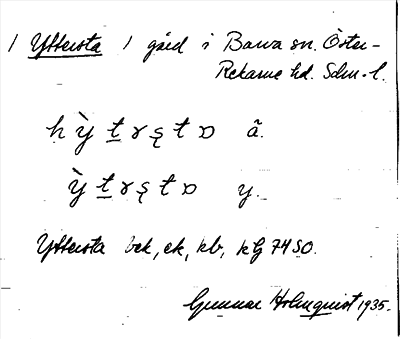 1 Yttersta 1 gård i Barva sn. Öster-
Rekarne hd. Sdm. l.
h y̌̀ t̲ r s̨ t ɒ ã.
y̌̀ t̲ r s̨ t ɒ y.
Yttersta bek, ek, kb, kG 74 SO.
Gunnar Holmquist 1935.